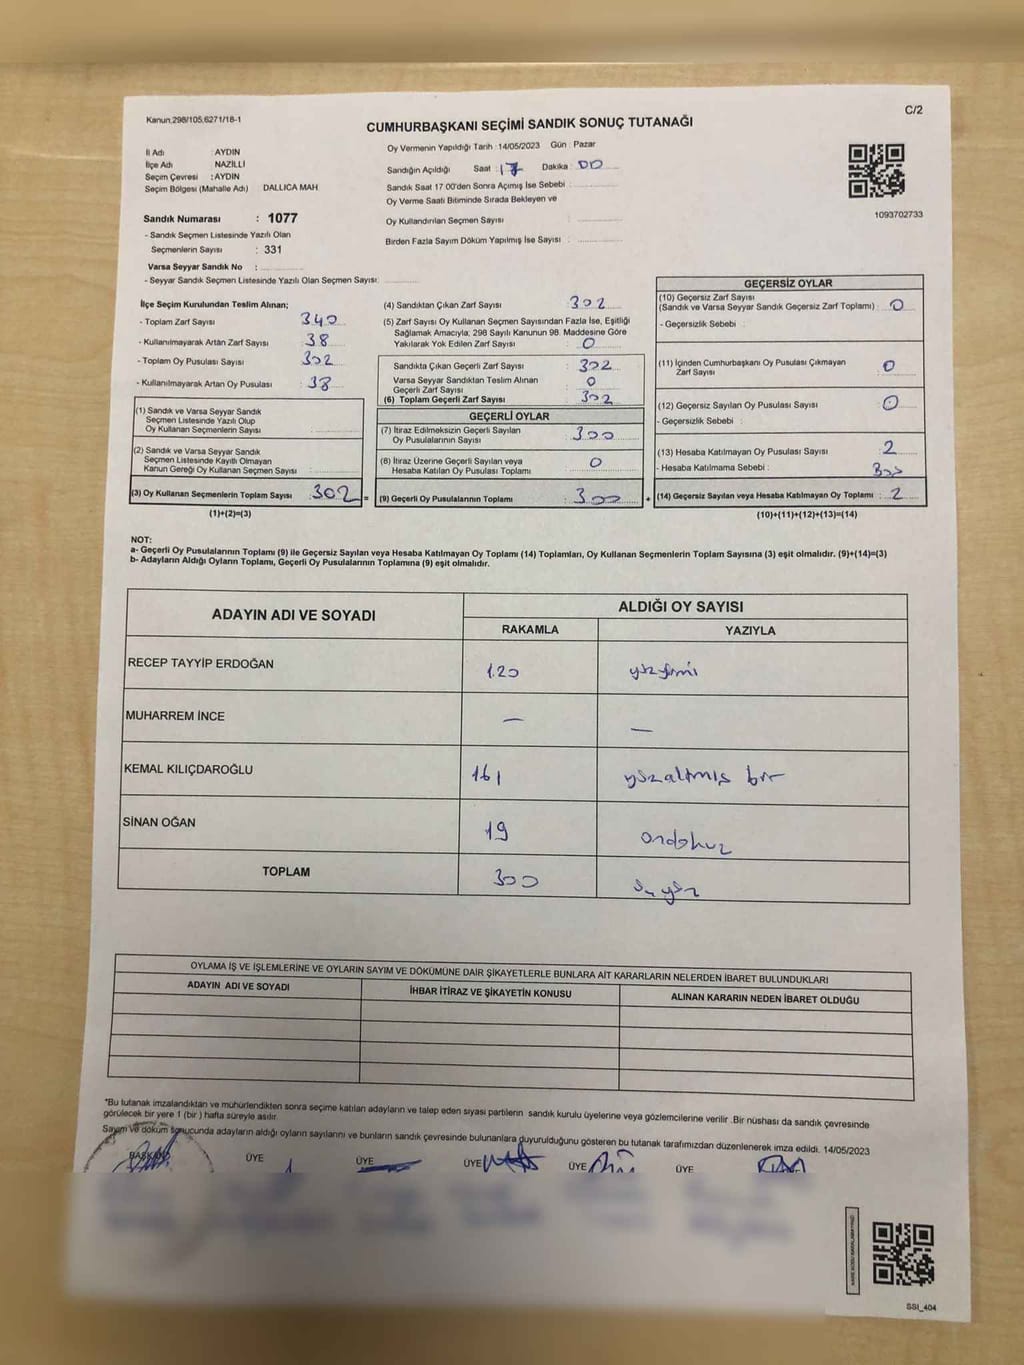 Kanun,298/105,6271/18-1
C/2
CUMHURBAŞKANI SEÇİMİ SANDIK SONUÇ TUTANAĞI
İl Adı : AYDIN
İlçe Adı NAZİLLİ
Seçim Çevresi : AYDIN
Seçim Bölgesi (Mahalle Adı) DALLICA MAH.
Sandık Numarası : 1077
- Sandık Seçmen Listesinde Yazılı Olan
Seçmenlerin Sayısı : 331
Varsa Seyyar Sandık No :
- Seyyar Sandık Seçmen Listesinde Yazılı Olan Seçmen Sayısı:
Oy Vermenin Yapıldığı Tarih :14/05/2023 Gün : Pazar
Sandığın Açıldığı Saat : 17 Dakika : 00
Sandık Saat 17:00'den Sonra Açımış İse Sebebi :
Oy Verme Saati Bitiminde Sırada Bekleyen ve
Oy Kullandırılan Seçmen Sayısı :
Birden Fazla Sayım Döküm Yapılmış İse Sayısı :
1093702733
İlçe Seçim Kurulundan Teslim Alınan;
- Toplam Zarf Sayısı 340
- Kullanılmayarak Artan Zarf Sayısı 38
- Toplam Oy Pusulası Sayısı 302
- Kullanılmayarak Artan Oy Pusulası 38
(1) Sandık ve Varsa Seyyar Sandık
Seçmen Listesinde Yazılı Olup
Oy Kullanan Seçmenlerin Sayısı :
(2) Sandık ve Varsa Seyyar Sandık
Seçmen Listesinde Kayıtlı Olmayan
Kanun Gereği Oy Kullanan Seçmen Sayısı :
(3) Oy Kullanan Seçmenlerin Toplam Sayısı : 302 =
(1)+(2)=(3)
(4) Sandıktan Çıkan Zarf Sayısı : 302
(5) Zarf Sayısı Oy Kullanan Seçmen Sayısından Fazla İse, Eşitliği
Sağlamak Amacıyla; 298 Sayılı Kanunun 98. Maddesine Göre
Yakılarak Yok Edilen Zarf Sayısı : 0
Sandıkta Çıkan Geçerli Zarf Sayısı : 302
Varsa Seyyar Sandıktan Teslim Alınan
Geçerli Zarf Sayısı : 0
(6) Toplam Geçerli Zarf Sayısı : 302
GEÇERLİ OYLAR
(7) İtiraz Edilmeksizin Geçerli Sayılan
Oy Pusulalarının Sayısı : 300
(8) İtiraz Üzerine Geçerli Sayılan veya
Hesaba Katılan Oy Pusulası Toplamı : 0
(9) Geçerli Oy Pusulalarının Toplamı : 300 +
GEÇERSİZ OYLAR
(10) Geçersiz Zarf Sayısı
(Sandık ve Varsa Seyyar Sandık Geçersiz Zarf Toplamı) : 0
- Geçersizlik Sebebi :
(11) İçinden Cumhurbaşkanı Oy Pusulası Çıkmayan
Zarf Sayısı : 0
(12) Geçersiz Sayılan Oy Pusulası Sayısı : 0
- Geçersizlik Sebebi :
(13) Hesaba Katılmayan Oy Pusulası Sayısı : 2
- Hesaba Katılmama Sebebi : 300
(14) Geçersiz Sayılan veya Hesaba Katılmayan Oy Toplamı : 2
(10)+(11)+(12)+(13)=(14)
NOT:
a- Geçerli Oy Pusulalarının Toplamı (9) ile Geçersiz Sayılan veya Hesaba Katılmayan Oy Toplamı (14) Toplamları, Oy Kullanan Seçmenlerin Toplam Sayısına (3) eşit olmalıdır. (9)+(14)=(3)
b- Adayların Aldığı Oyların Toplamı, Geçerli Oy Pusulalarının Toplamına (9) eşit olmalıdır.
ADAYIN ADI VE SOYADI ALDIĞI OY SAYISI
RAKAMLA YAZIYLA
RECEP TAYYİP ERDOĞAN 120 yüzyirmi
MUHARREM İNCE — —
KEMAL KILIÇDAROĞLU 161 yüzaltmış bir
SİNAN OĞAN 19 ondokuz
TOPLAM 300 üçyüz
OYLAMA İŞ VE İŞLEMLERİNE VE OYLARIN SAYIM VE DÖKÜMÜNE DAİR ŞİKAYETLERLE BUNLARA AİT KARARLARIN NELERDEN İBARET BULUNDUKLARI
ADAYIN ADI VE SOYADI İHBAR İTİRAZ VE ŞİKAYETİN KONUSU ALINAN KARARIN NEDEN İBARET OLDUĞU
*Bu tutanak imzalandıktan ve mühürlendikten sonra seçime katılan adayların ve talep eden siyasi partilerin sandık kurulu üyelerine veya gözlemcilerine verilir .Bir nüshası da sandık çevresinde
görülecek bir yere 1 (bir ) hafta süreyle asılır.
Sayım ve döküm sonucunda adayların aldığı oyların sayılarını ve bunların sandık çevresinde bulunanlara duyurulduğunu gösteren bu tutanak tarafımızdan düzenlenerek imza edildi. 14/05/2023
BAŞKAN ÜYE ÜYE ÜYE ÜYE ÜYE
SSI_404